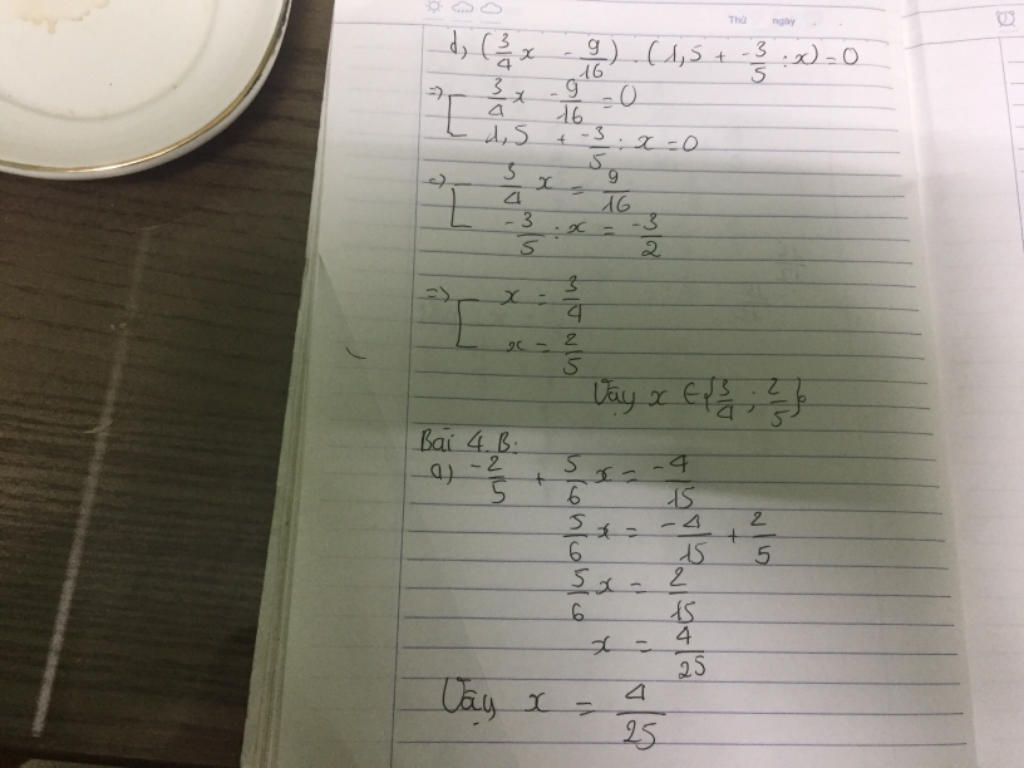 Thứ ngày
d, (3/4 x - 9/16) . (1,5 + -3/5 : x) = 0
=> [ 3/4 x - 9/16 = 0
1,5 + -3/5 : x = 0
=> [ 3/4 x = 9/16
-3/5 : x = -3/2
=> [ x = 3/4
x = 2/5
Vậy x ∈ {3/4 ; 2/5}
Bài 4.B:
a) -2/5 + 5/6 x = -4/15
5/6 x = -4/15 + 2/5
5/6 x = 2/15
x = 4/25
Vậy x = 4/25